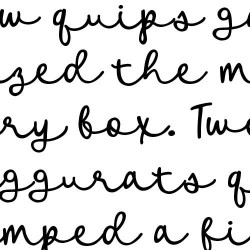 w quips g
zed the m
ry box. Tw
ggurats q
mped a fi